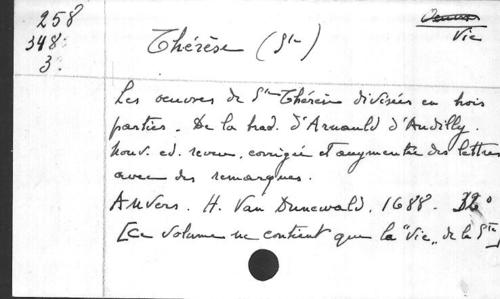 258
348
3
Thérèse (Ste)
Oeuvres
Vie
Les oeuvres de Ste Thérèse divisées en trois
parties. De la trad. d'Arnauld d'Andilly.
nouv. ed. revue, corrigée et augmentée des lettres
avec des remarques.
Anvers. H. Van Dunewald, 1688. 32o
[Ce volume ne contient que la "Vie" de la Ste]